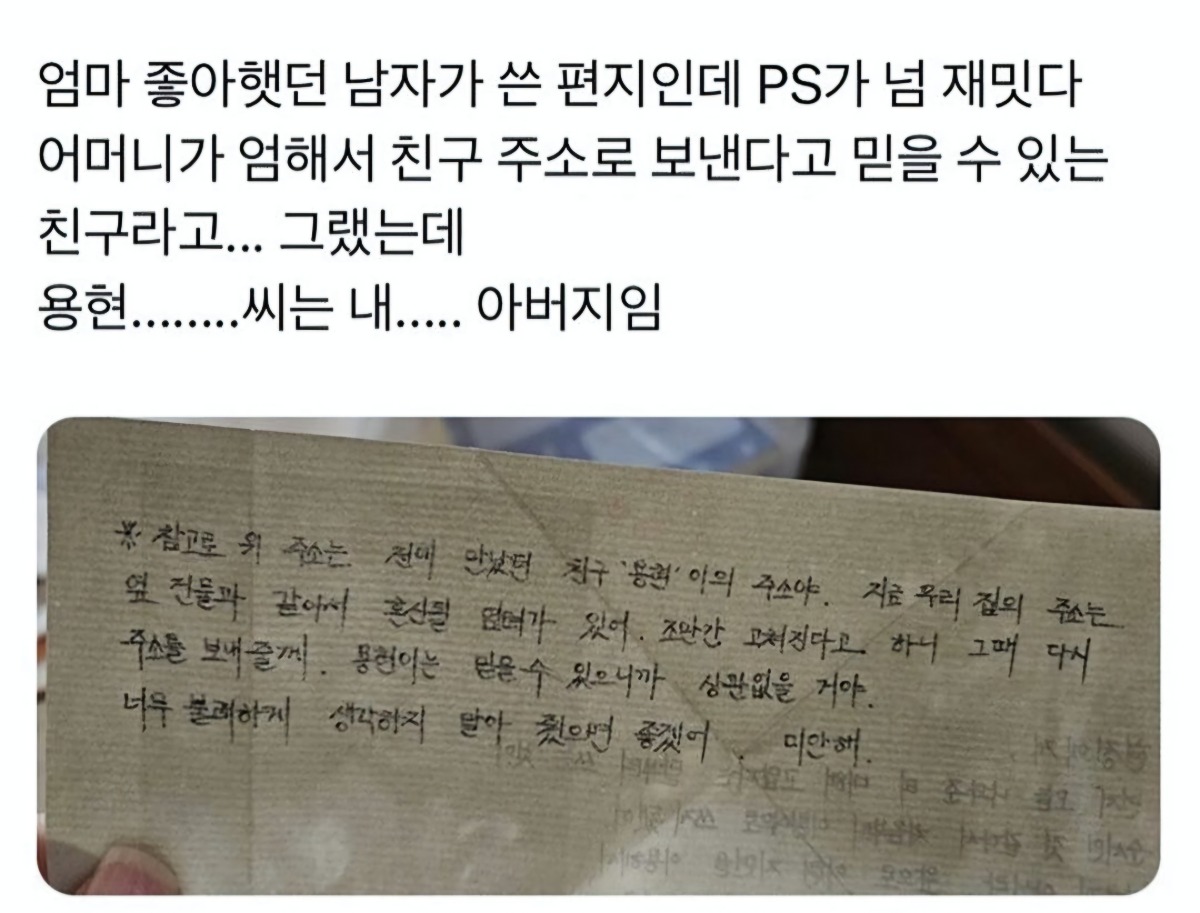 엄마 좋아햇던 남자가 쓴 편지인데 PS가 넘 재밋다
어머니가 엄해서 친구 주소로 보낸다고 믿을 수 있는
친구라고... 그랬는데
용현........씨는 내..... 아버지임
※ 참고로 위 주소는 전에 만났던 친구 '용현' 이의 주소야. 지금 우리 집의 주소는
옆 건물과 같아서 혼신될 염려가 있어. 조만간 고쳐진다고 하니 그때 다시
주소를 보내줄께. 용현이는 믿을 수 있으니까 상관없을 거야.
너무 불쾌하게 생각하지 말아 줬으면 좋겠어. 미안해.